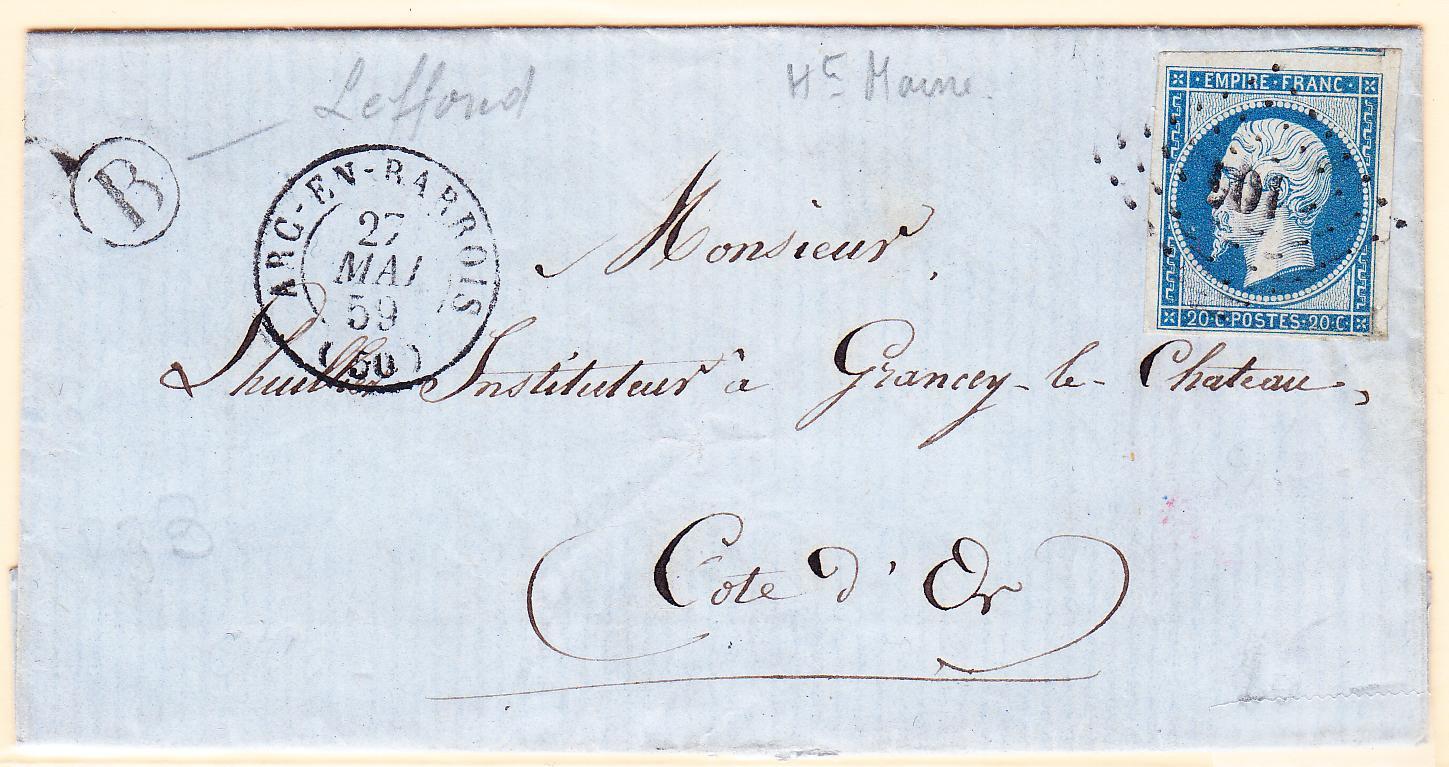 Leffond
Hᵗᵉ Marne
B
ARC-EN-BARROIS
27
MAI
59
(50)
EMPIRE FRANC
20·C·POSTES·20·C
Monsieur,
Lhuillier Instituteur à Grancey-le-Chateau,
Côte d'Or